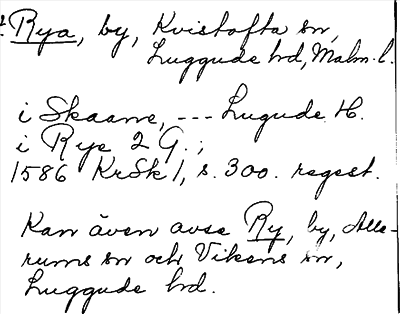 Rya, by, Kvistofta sn,
Luggude hd, Malm. l.
i Skaane, --- Lugude H.
i Rye 2 G.;
1586 KrSk 1, s. 300. regest.
Kan även avse Ry, by, Alle-
rums sn och Vikens sn,
Luggude hd.